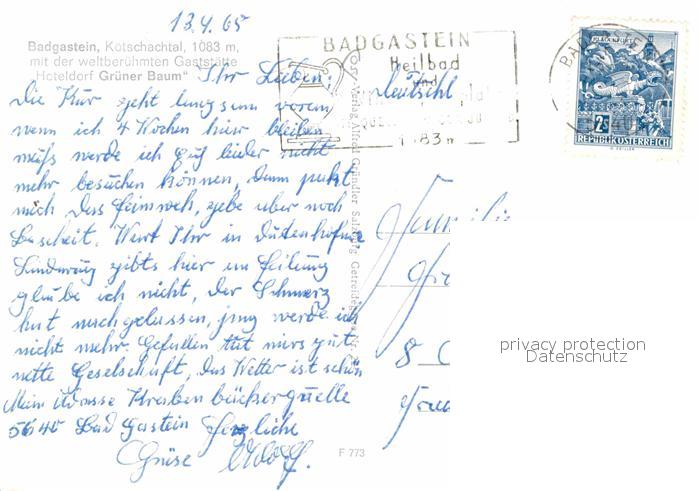 13.4.65
Badgastein, Kötschachtal, 1083 m,
mit der weltberühmten Gaststätte
"Hoteldorf Grüner Baum"
Ihr Lieben,
die Kur geht langsam voran
wenn ich 4 Wochen hier bleiben
muß werde ich Euch leider nicht
mehr besuchen können, dann packt
mich das Heimweh, gebe aber noch
Bescheit. Wart Ihr in Dudenhofen
Linderung gibts hier an Heilung
glaube ich nicht, der Schmerz
hat nachgelassen, jung werde ich
nicht mehr. Gefallen tut mirs gut
nette Geselschaft, das Wetter ist schön
Mein Adresse Kneben bäckerquelle
5640 Bad Gastein Herzliche
Grüse Adolf.
BADGASTEIN
Heilbad
und
1083 m
Deutschl
Familie
8
REPUBLIK ÖSTERREICH
2 S
Cosy-Verlag Alfred Gründler Salzburg Getreidegasse
F 773
privacy protection
Datenschutz